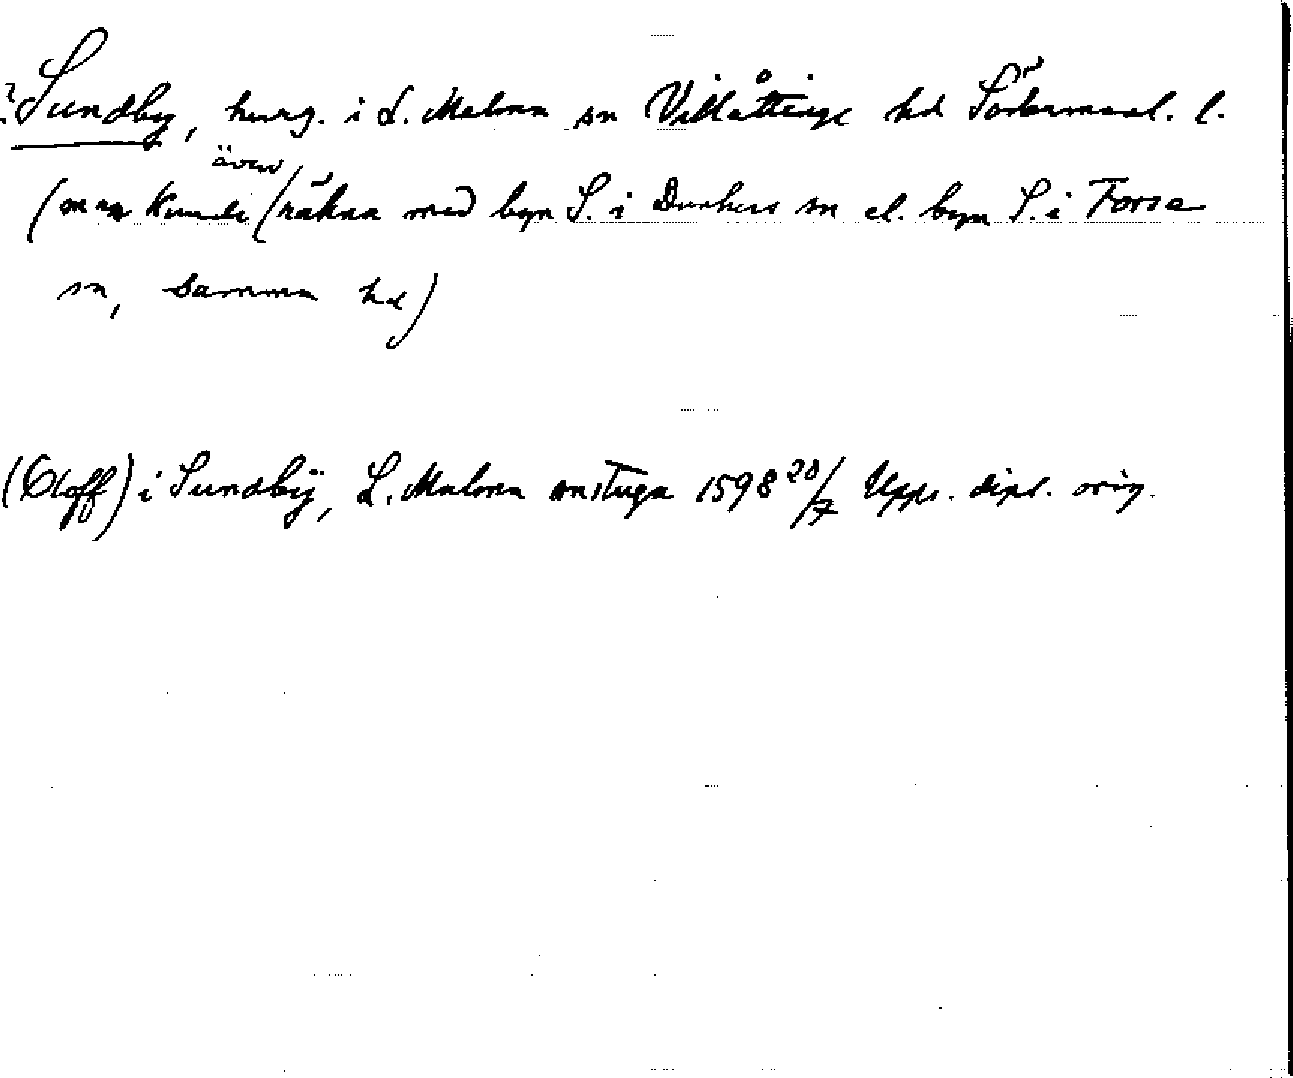 ? Sundby, herrg. i L. Malma sn Villåttinge hd Södermanl. l.
(man kunde även räkna med byn S. i Dunkers sn el. byn S. i Forssa
sn, samma hd)
(Oloff) i Sundbÿ, L. Malma snstuga 1598 28/7 Upps. dipl. orig.